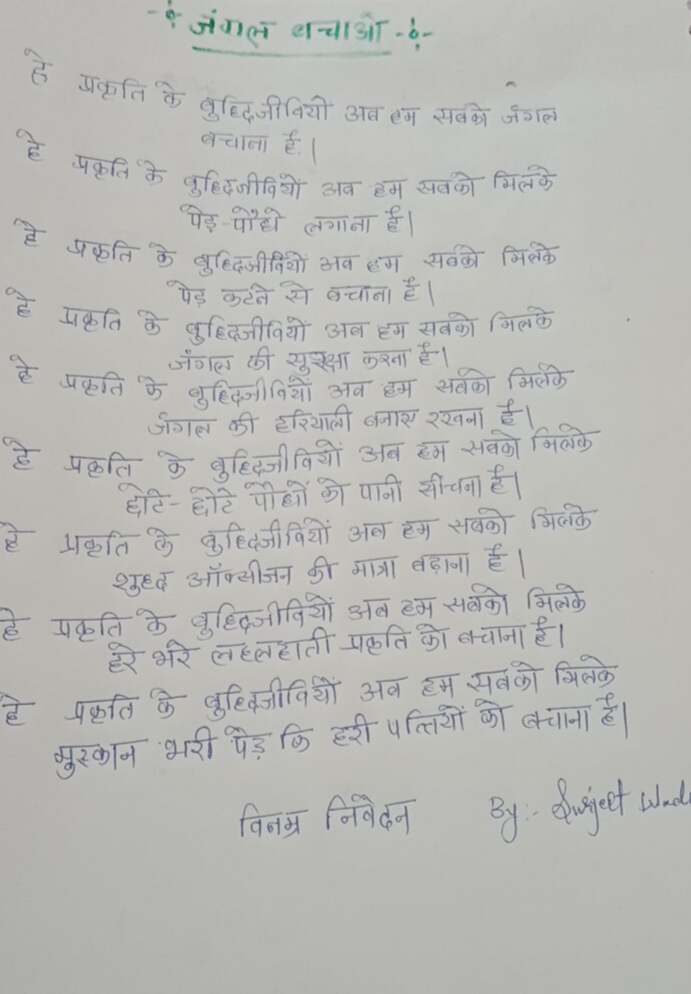 जंगल बचाओ
हे प्रकृति के बुद्धिजीवियों अब हम सबको जंगल
बचाना है।
हे प्रकृति के बुद्धिजीवियों अब हम सबको मिलके
पेड़-पौधो लगाना है।
हे प्रकृति के बुद्धिजीवियों अब हम सबको मिलके
पेड़ कटने से बचाना है।
हे प्रकृति के बुद्धिजीवियों अब हम सबको मिलके
जंगल की सुरक्षा करना है।
हे प्रकृति के बुद्धिजीवियों अब हम सबको मिलके
जंगल की हरियाली बनाए रखना है।
हे प्रकृति के बुद्धिजीवियों अब हम सबको मिलके
छोटे-छोटे पौधों को पानी सींचना है।
हे प्रकृति के बुद्धिजीवियों अब हम सबको मिलके
शुद्ध ऑक्सीजन की मात्रा बढ़ाना है।
हे प्रकृति के बुद्धिजीवियों अब हम सबको मिलके
हरे भरे लहलहाती प्रकृति को बचाना है।
हे प्रकृति के बुद्धिजीवियों अब हम सबको मिलके
मुस्कान भरी पेड़ कि हरी पत्तियों को बचाना है।
विनम्र निवेदन By:- Surjeet